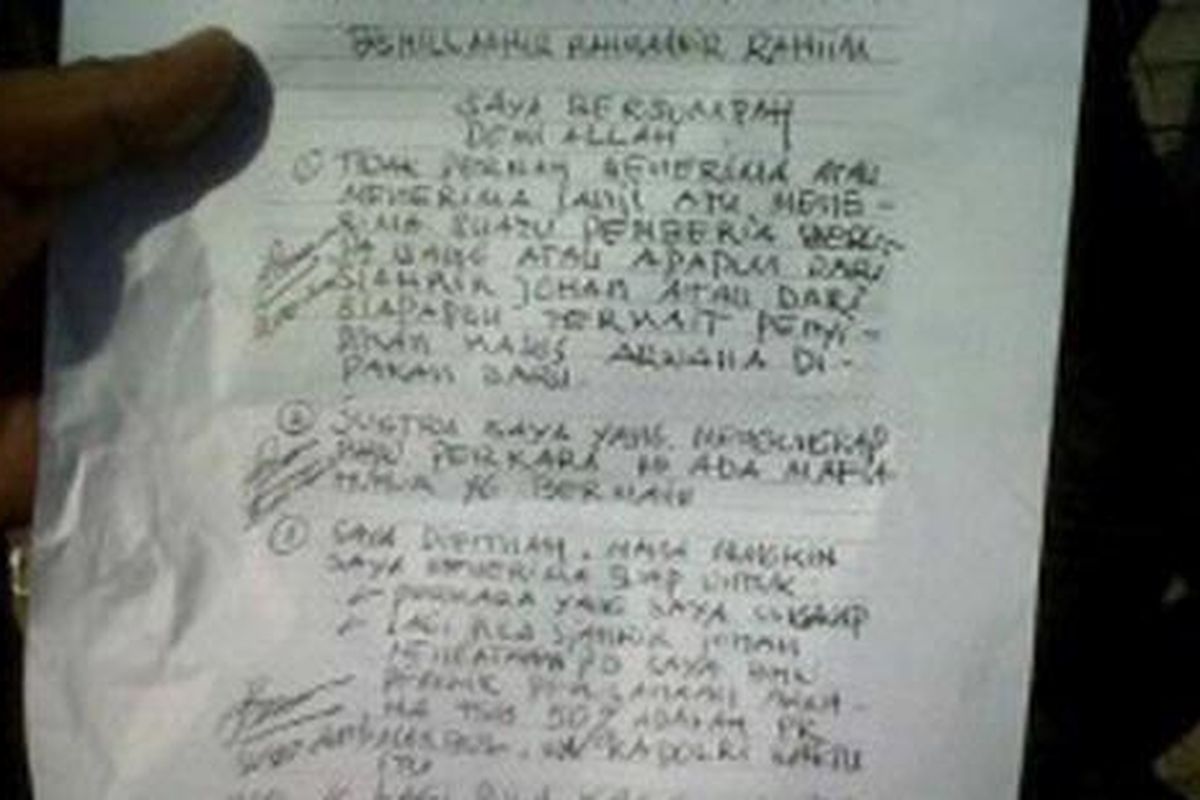 BSMILLAAHIR RAHMANIR RAHIIM
SAYA BERSUMPAH
DEMI ALLAH
① TIDAK PERNAH MENERIMA ATAU
MENERIMA JANJI ATU MENE-
RIMA SUATU PEMBERIA BERU-
PA UANG ATAU APAPUN DARI
SJAHRIR JOHAN ATAU DARI
SIAPAPUN TERKAIT PENYI-
DIKAN KASUS ARWANA DI-
PAKAN BARU.
② JUSTRU SAYA YANG MENGUNGKAP
BHW PERKARA INI ADA MAFIA
HUKUM YG BERMAIN
③ SAYA DIFITNAH. MANA MUNGKIN
SAYA MENERIMA SUAP UNTUK
PERKARA YANG SAYA UNGKAP
LAGI PULA SJAHRIR JOHAN
SAYA
50% ADALAH
KAPOLRI WAKTU
ITU
LAGI PULA